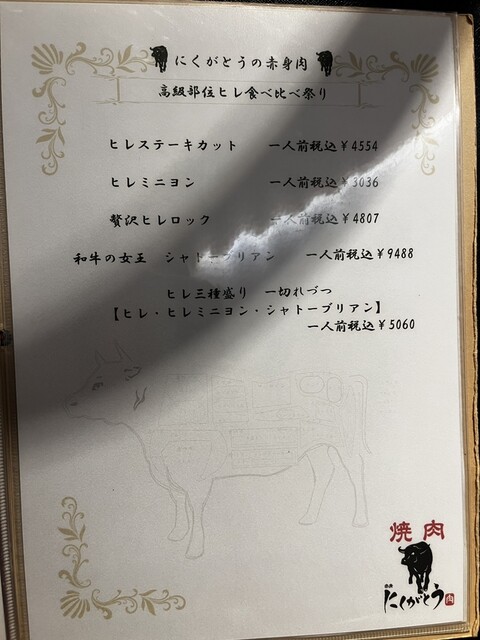 にくがとうの赤身肉
高級部位ヒレ食べ比べ祭り
ヒレステーキカット 一人前税込¥4554
ヒレミニヨン 一人前税込¥3036
贅沢ヒレロック 一人前税込¥4807
和牛の女王 シャトーブリアン 一人前税込¥9488
ヒレ三種盛り 一切れづつ
【ヒレ・ヒレミニヨン・シャトーブリアン】
一人前税込¥5060
焼肉
にくがとう
肉